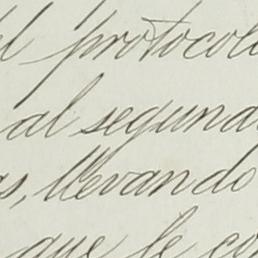 el protocolo
al segunda
as, llevando
que le co